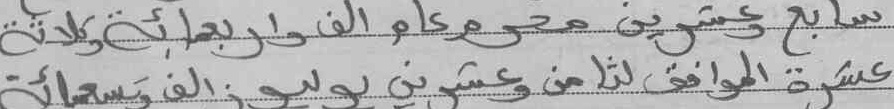 سابع وعشرين محرم عام الف واربعمائة وثلاثة
عشرة الموافق لثامن وعشرين يوليوز الف وتسعمائة